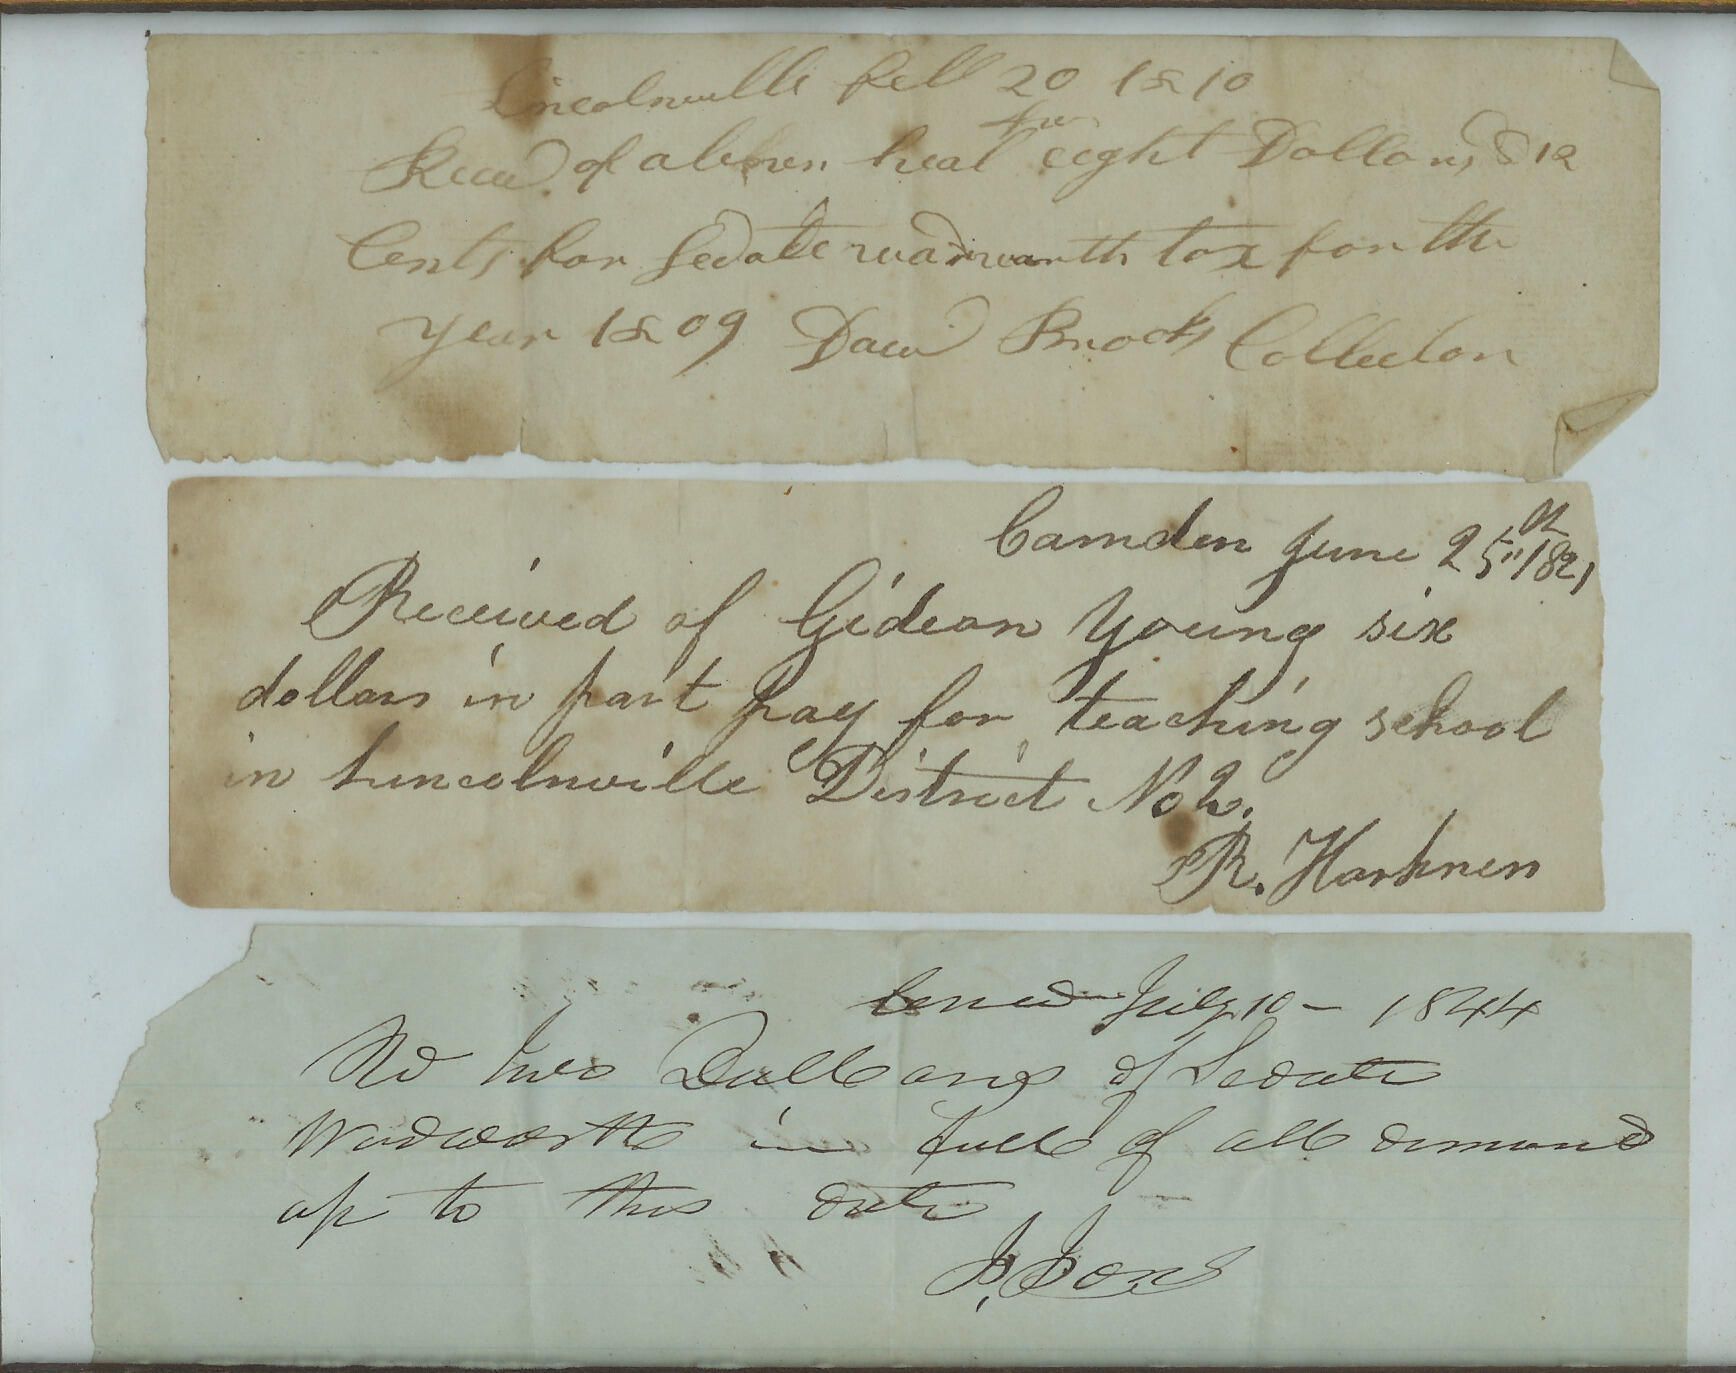 Lincolnville feb 20 1810
four
Recd of abner heal eight Dollars & 12
Cents for Sedate wadworth tax for the
year 1809 Davi Brooks Collector
Camden June 25th 1821
Received of Gideon Young six
dollars in part pay for teaching school
in Lincolnville District No 2.
R. Harkness
July 10 - 1844
Rd two Dollars of Sedate
Wadworth in full of all demand
up to this date
J. Jones